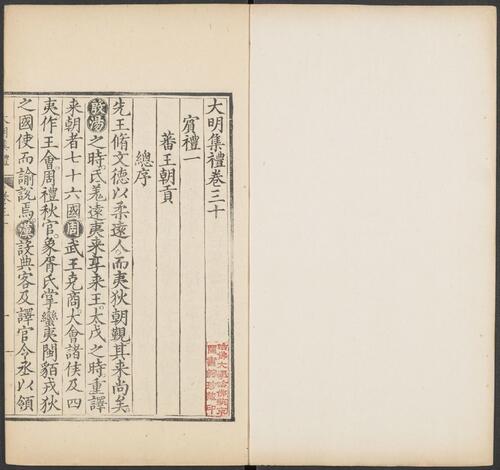 大明集禮卷三十
賓禮一
蕃王朝貢
總序
先王脩文德以柔遠人而夷狄朝覲其来尚矣
殷湯之時氐羌遠夷来享来王太戊之時重譯
来朝者七十六國周武王克商大會諸侯及四
夷作王會周禮秋官象胥氏掌蠻夷閩貉戎狄
之國使而諭說焉漢設典客及譯官令丞以領